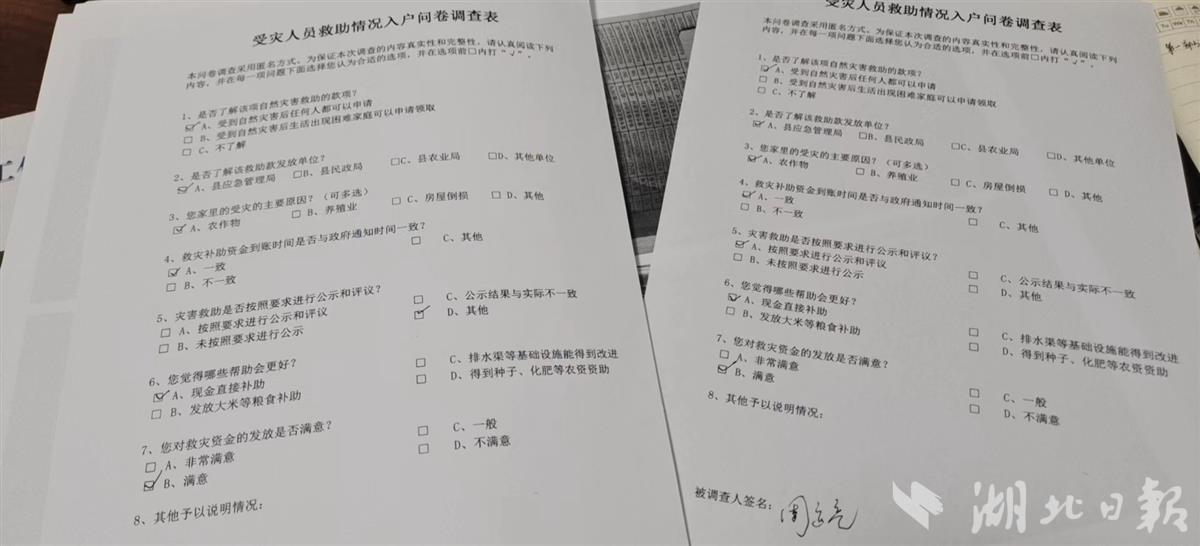 受灾人员救助情况入户问卷调查表
本问卷调查采用匿名方式，为保证本次调查的内容真实性和完整性，请认真阅读下列
内容，并在每一项问题下面选择您认为合适的选项，并在选项前□内打“√”。
1、是否了解该项自然灾害救助的款项？
☑ A、受到自然灾害后任何人都可以申请
□ B、受到自然灾害后生活出现困难家庭可以申请领取
□ C、不了解
2、是否了解该救助款发放单位？
☑ A、县应急管理局 □B、县民政局 □C、县农业局 □D、其他单位
3、您家里的受灾的主要原因？（可多选）
☑ A、农作物 □ B、养殖业 □ C、房屋倒损 □ D、其他
4、救灾补助资金到账时间是否与政府通知时间一致？
☑ A、一致 □ C、其他
□ B、不一致
5、灾害救助是否按照要求进行公示和评议？
□ A、按照要求进行公示和评议 □ C、公示结果与实际不一致
□ B、未按照要求进行公示 ☑ D、其他
6、您觉得哪些帮助会更好？
☑ A、现金直接补助 □ C、排水渠等基础设施能得到改进
□ B、发放大米等粮食补助 □ D、得到种子、化肥等农资资助
7、您对救灾资金的发放是否满意？
□ A、非常满意 □ C、一般
☑ B、满意 □ D、不满意
8、其他予以说明情况：
受灾人员救助情况入户问卷调查表
本问卷调查采用匿名方式，为保证本次调查的内容真实性和完整性，请认真阅读下列
内容，并在每一项问题下面选择您认为合适的选项，并在选项前□内打“√”。
1、是否了解该项自然灾害救助的款项？
☑ A、受到自然灾害后任何人都可以申请
□ B、受到自然灾害后生活出现困难家庭可以申请领取
□ C、不了解
2、是否了解该救助款发放单位？
☑ A、县应急管理局 □B、县民政局 □C、县农业局 □D、其他单位
3、您家里的受灾的主要原因？（可多选）
☑ A、农作物 □ B、养殖业 □ C、房屋倒损 □ D、其他
4、救灾补助资金到账时间是否与政府通知时间一致？
☑ A、一致 □ C、其他
□ B、不一致
5、灾害救助是否按照要求进行公示和评议？
☑ A、按照要求进行公示和评议 □ C、公示结果与实际不一致
□ B、未按照要求进行公示 □ D、其他
6、您觉得哪些帮助会更好？
☑ A、现金直接补助 □ C、排水渠等基础设施能得到改进
□ B、发放大米等粮食补助 □ D、得到种子、化肥等农资资助
7、您对救灾资金的发放是否满意？
□ A、非常满意 □ C、一般
☑ B、满意 □ D、不满意
8、其他予以说明情况：
被调查人签名：
湖北日报